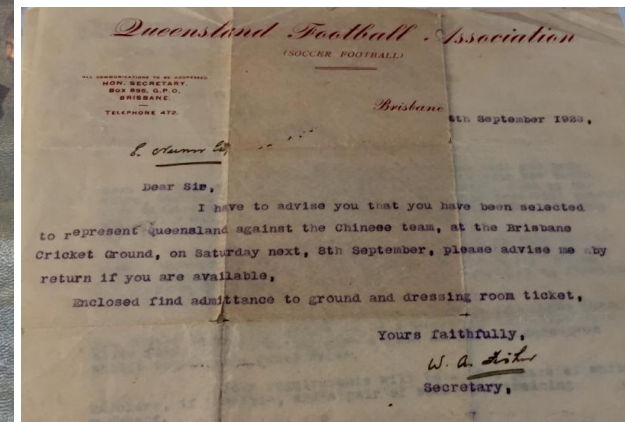 Queensland Football Association
(SOCCER FOOTBALL)
ALL COMMUNICATIONS TO BE ADDRESSED
HON. SECRETARY.
BOX 895, G.P.O.
BRISBANE.
TELEPHONE 472.
Brisbane
4th September 1923,
Dear Sir,
I have to advise you that you have been selected
to represent Queensland against the Chinese team, at the Brisbane
Cricket Ground, on Saturday next, 8th September, please advise me by
return if you are available,
Enclosed find admittance to ground and dressing room ticket,
Yours faithfully,
W. A. Fisher
Secretary,